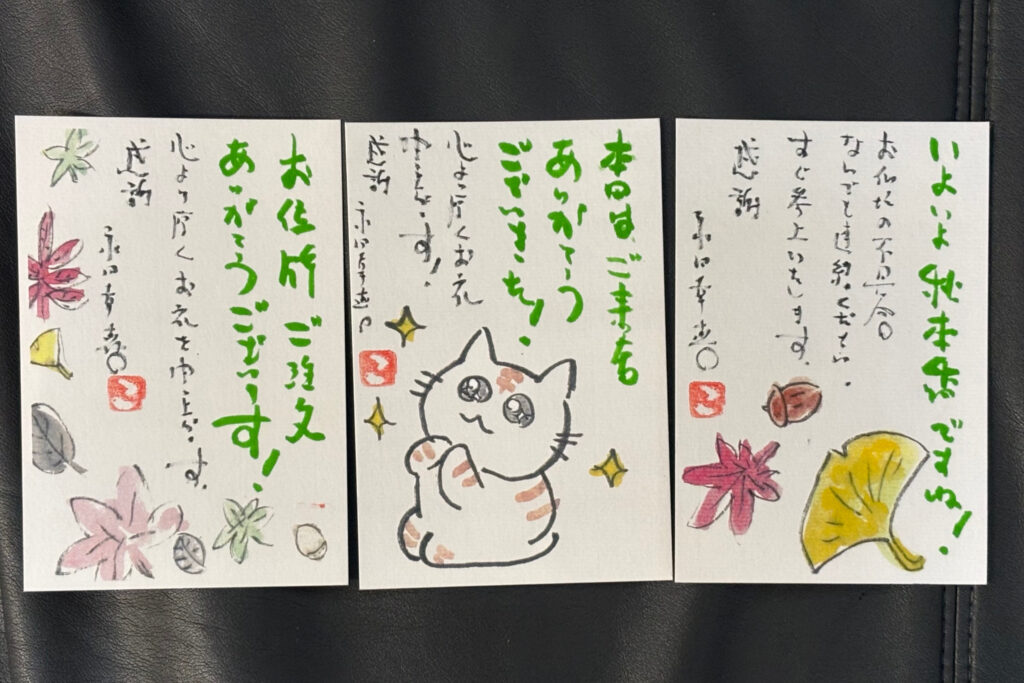 いよいよ秋本番ですね!
お仏壇の不具合
なんでも連絡ください。
すぐ参上いたします。
感謝
本日は、ご来店
ありがとう
ございました!
心より厚くお礼
申し上げます!
感謝
お位牌ご注文
ありがとうございます!
心より厚くお礼を申し上げます。
感謝